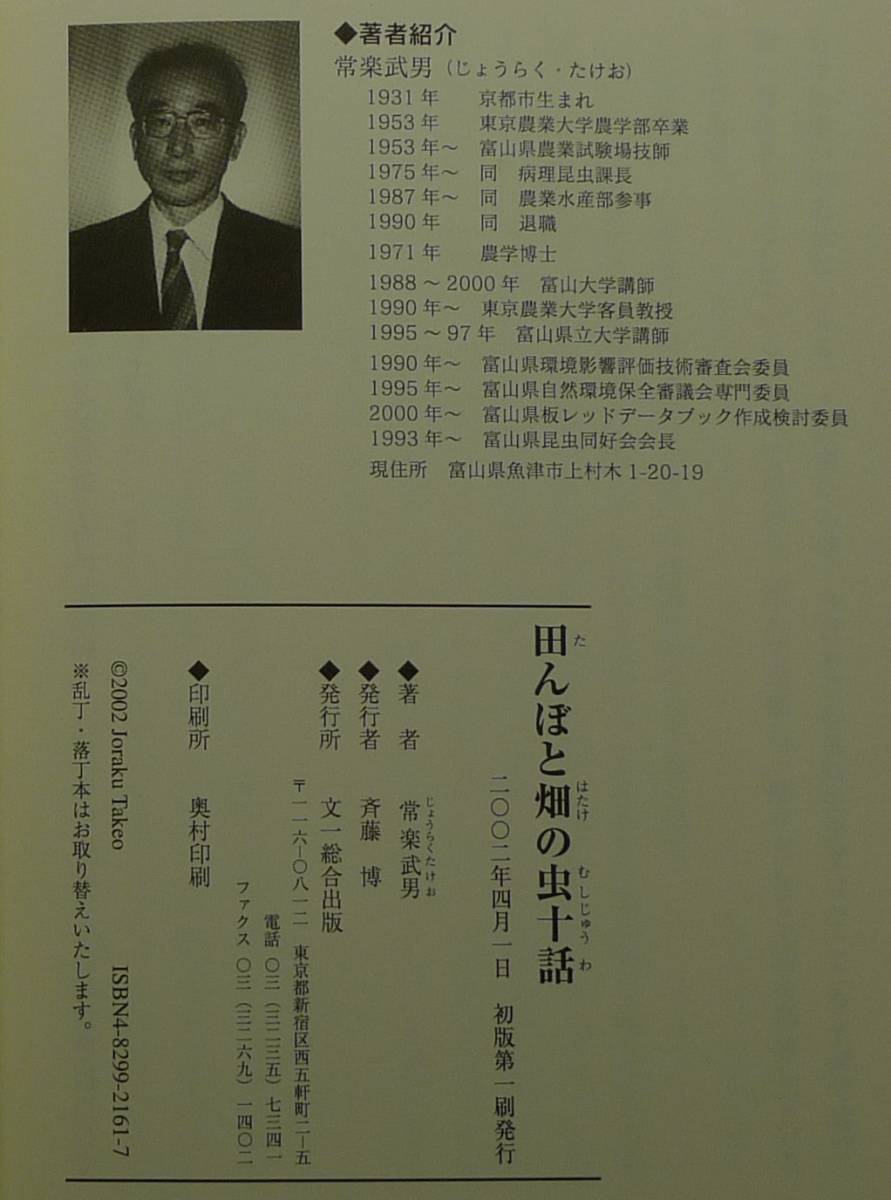 ◆著者紹介
常楽武男(じょうらく・たけお)
1931年 京都市生まれ
1953年 東京農業大学農学部卒業
1953年~ 富山県農業試験場技師
1975年~ 同 病理昆虫課長
1987年~ 同 農業水産部参事
1990年 同 退職
1971年 農学博士
1988~2000年 富山大学講師
1990年~ 東京農業大学客員教授
1995~97年 富山県立大学講師
1990年~ 富山県環境影響評価技術審査会委員
1995年~ 富山県自然環境保全審議会専門委員
2000年~ 富山県板レッドデータブック作成検討委員
1993年~ 富山県昆虫同好会会長
現住所 富山県魚津市上村木1-20-19
田んぼと畑の虫十話
た はたけ むしじゅう わ
二〇〇二年四月一日 初版第一刷発行
◆著 者 常楽武男
じょうらくたけお
◆発行者 斉藤 博
◆発行所 文一総合出版
〒一一六−〇八一二 東京都新宿区西五軒町二−五
電話 〇三(三二三五)七三四一
ファクス 〇三(三二六九)一四〇二
◆印刷所 奥村印刷
©2002 Joraku Takeo ISBN4-8299-2161-7
※乱丁・落丁本はお取り替えいたします。